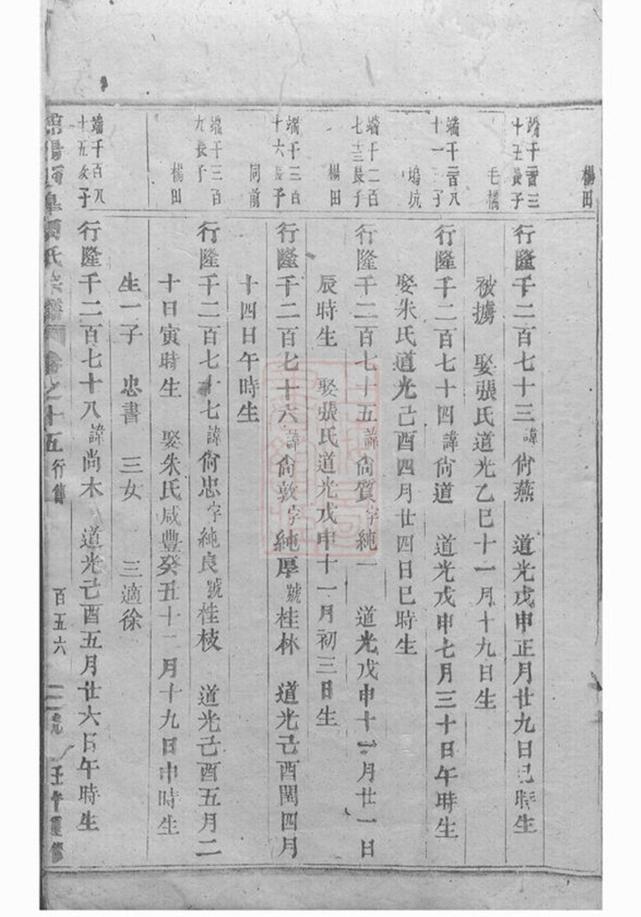 楊田
端千二百三
十五長子
毛橋
行隆千二百七十三諱尙燕 道光戊申正月廿九日巳時生
被擄 娶張氏道光乙巳十一月十九日生
端千二百八
十一 子
塢坑
行隆千二百七十四諱尙道 道光戊申七月三十日午時生
娶朱氏道光己酉四月廿四日巳時生
端千二百
七十三長子
楊田
行隆千二百七十五諱尙質字純一 道光戊申十一月廿一日
辰時生 娶張氏道光戊申十一月初三日生
端千三百
十六長子
同前
行隆千二百七十六諱尙敦字純厚號桂林 道光己酉閏四月
十四日午時生
端千三百
九長子
楊田
行隆千二百七十七諱尙忠字純良號桂枝 道光己酉五月二
十日寅時生 娶朱氏咸豐癸丑十二月十九日申時生
生一子 忠書 三女 三適徐
端千百八
十五次子
行隆千二百七十八諱尚木 道光己酉五月廿六日午時生
氏宗譜 卷之十五 行傳 百五六